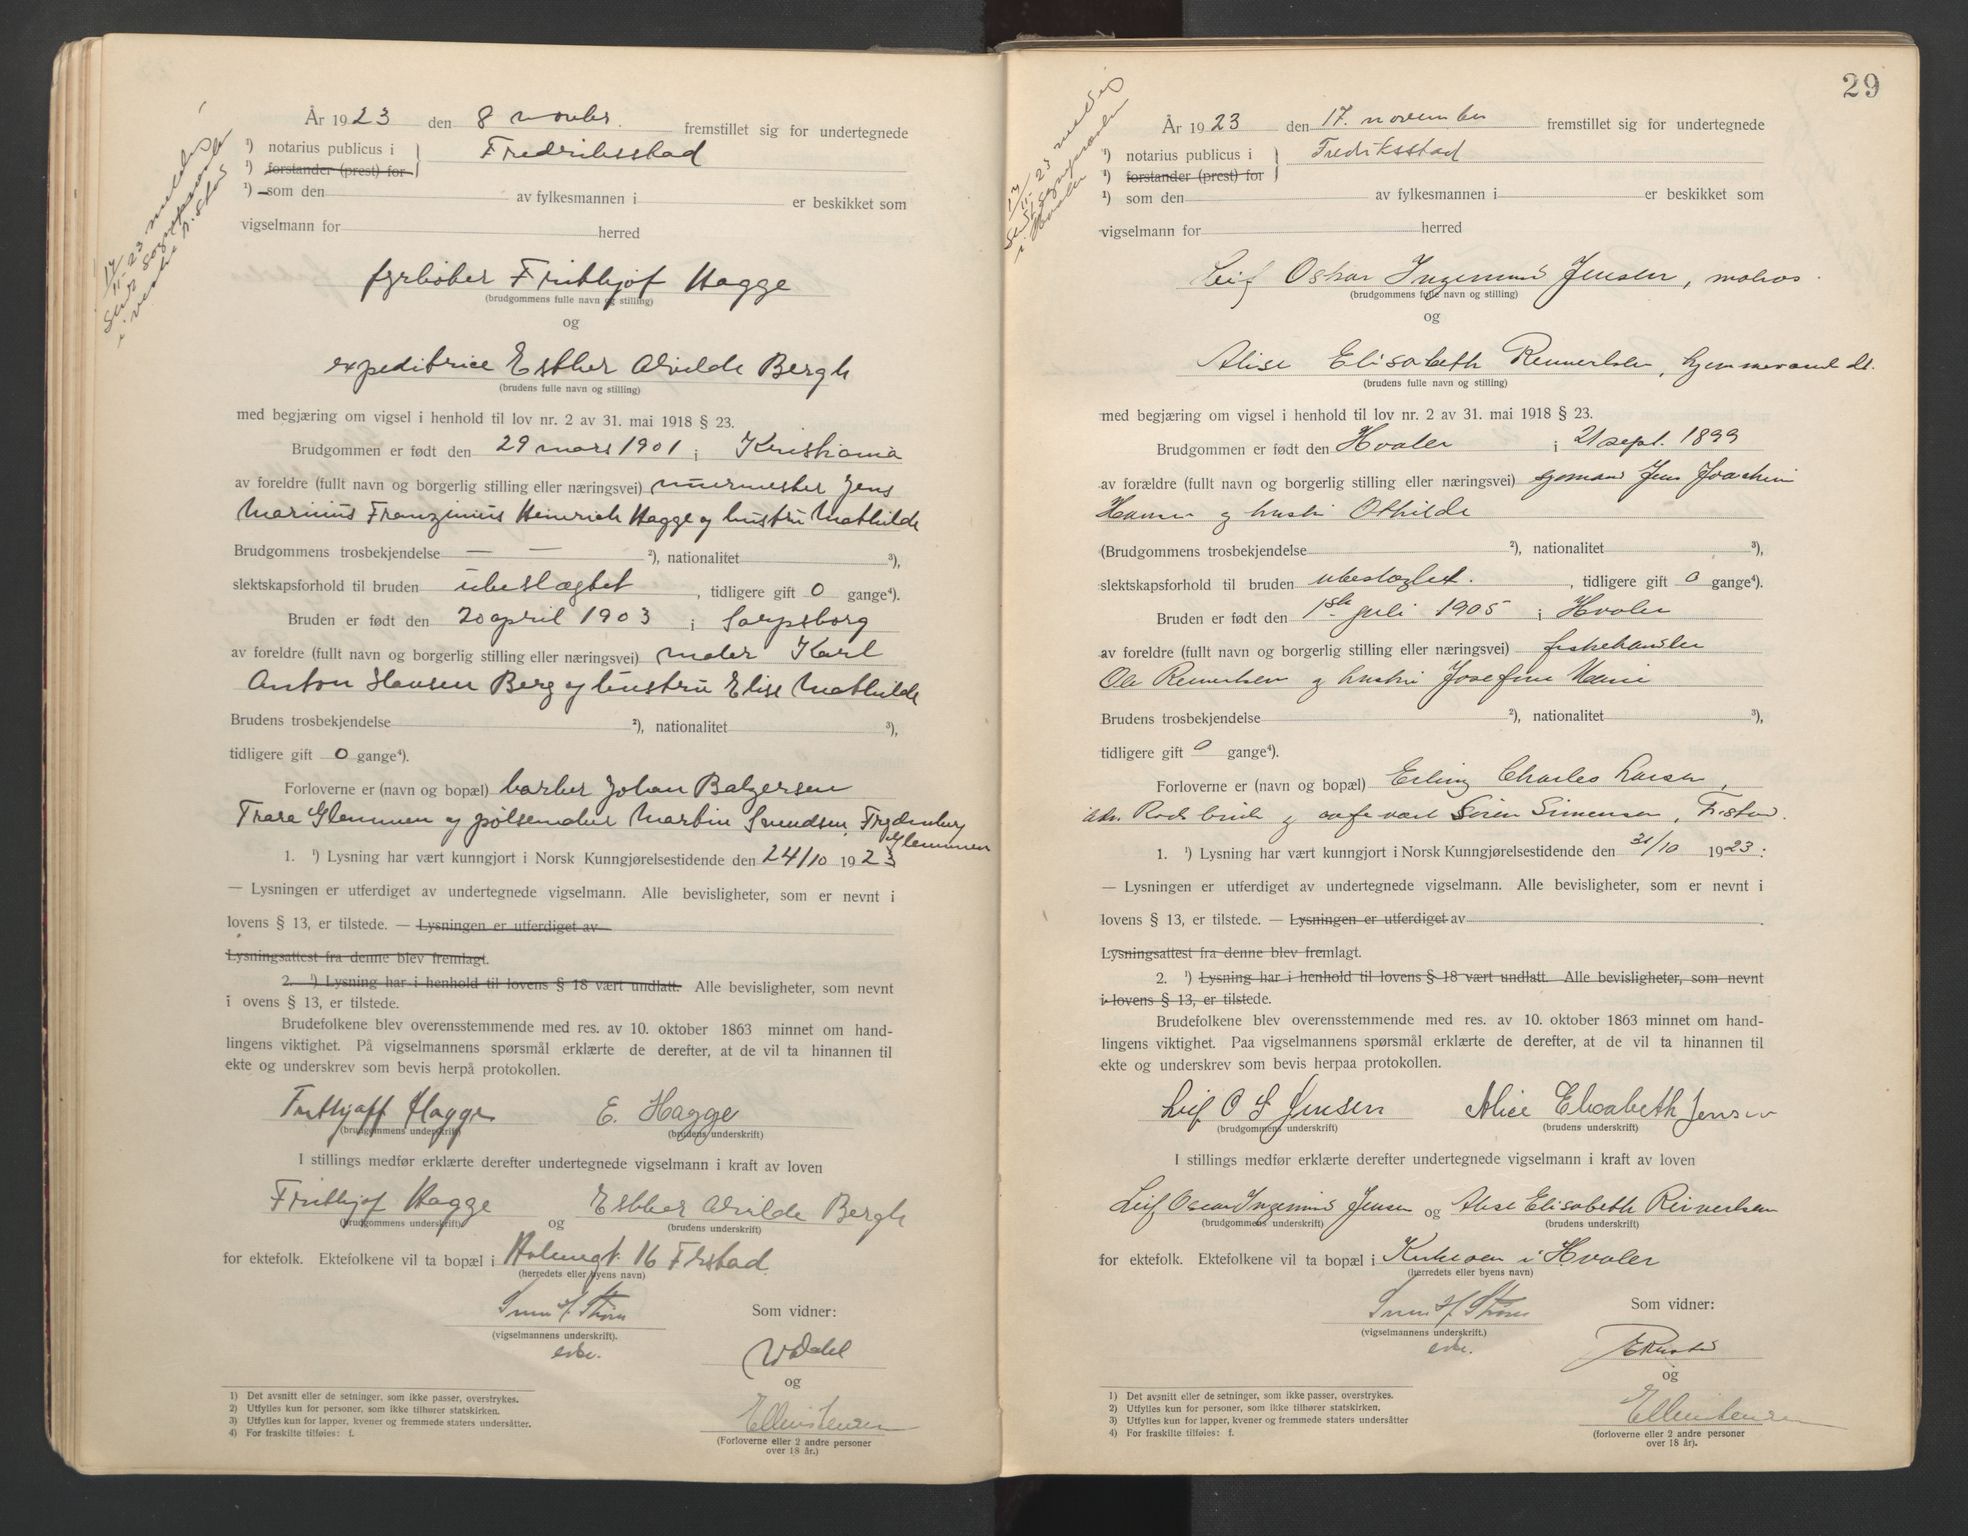 År 1923 den 8 novbr. fremstillet sig for undertegnede
¹) notarius publicus i } Fredriksstad
¹) forstander (prest) for
¹) som den av fylkesmannen i er beskikket som
vigselmann for herred
fyrbøter Frithjof Hagge
(brudgommens fulle navn og stilling)
og
expeditrice Esther Alvilde Bergh
(brudens fulle navn og stilling)
med begjæring om vigsel i henhold til lov nr. 2 av 31. mai 1918 § 23.
Brudgommen er født den 29 mars 1901 i Kristiania
av foreldre (fullt navn og borgerlig stilling eller næringsvei) murmester Jens
Marinius Franzinius Heinrich Hagge og hustru Mathilde
Brudgommens trosbekjendelse — — ²), nationalitet ³),
slektskapsforhold til bruden ubeslægtet, tidligere gift 0 gange⁴).
Bruden er født den 20 april 1903 i Sarpsborg
av foreldre (fullt navn og borgerlig stilling eller næringsvei) maler Karl
Anton Hansen Berg og hustru Elise Mathilde
Brudens trosbekjendelse ²), nationalitet ³),
tidligere gift 0 gange⁴).
Forloverne er (navn og bopæl) barber Johan Balzersen
Trara Glemmen og pølsemaker Martin Svendsen, Frydenberg
Glemmen
1. ¹) Lysning har vært kunngjort i Norsk Kunngjørelsestidende den 24/10 1923
— Lysningen er utferdiget av undertegnede vigselmann. Alle bevisligheter, som er nevnt i
lovens § 13, er tilstede. — Lysningen er utferdiget av
Lysningsattest fra denne blev fremlagt.
2. ¹) Lysning har i henhold til lovens § 18 vært undlatt. Alle bevisligheter, som nevnt
i ovens § 13, er tilstede.
Brudefolkene blev overensstemmende med res. av 10. oktober 1863 minnet om hand-
lingens viktighet. På vigselmannens spørsmål erklærte de derefter, at de vil ta hinannen til
ekte og underskrev som bevis herpå protokollen.
Frithjoff Hagge E. Hagge
(brudgommens underskrift) (brudens underskrift)
I stillings medfør erklærte derefter undertegnede vigselmann i kraft av loven
Frithjof Hagge og Esther Alvilde Bergh
(brudgommens underskrift) (brudens underskrift)
for ektefolk. Ektefolkene vil ta bopæl i 16 Frstad
(herredets eller byens navn)
Som vidner:
(vigselmannens underskrift).
og
Ellen Jensen
(Forloverne eller 2 andre personer
over 18 år.)
1) Det avsnitt eller de setninger, som ikke passer, overstrykes.
2) Utfylles kun for personer, som ikke tilhører statskirken.
3) Utfylles kun for lapper, kvener og fremmede staters undersåtter.
4) For fraskilte tilføies: f.
29
År 1923 den 17. november fremstillet sig for undertegnede
¹) notarius publicus i } Fredriksstad
¹) forstander (prest) for
¹) som den av fylkesmannen i er beskikket som
vigselmann for herred
Leif Oskar Ingemund Jensen, matros
(brudgommens fulle navn og stilling)
og
Alise Elisabeth Reinertsen, hjemmeværende dt.
(brudens fulle navn og stilling)
med begjæring om vigsel i henhold til lov nr. 2 av 31. mai 1918 § 23.
Brudgommen er født den Hvaler i 21 sept. 1899
av forældre (fullt navn og borgerlig stilling eller næringsvei) sjømand Jens Joachim
Hansen og hustru Othilde
(Brudgommens trosbekjendelse ²), nationalitet ³),
slektskapsforhold til bruden ubeslægtet., tidligere gift 0 gange⁴).
Bruden er født den 1ste juli 1905 i Hvaler
av foreldre (fullt navn og borgerlig stilling eller næringsvei) fiskehandler
Ole Reinertsen og hustru Josefine
Brudens trosbekjendelse ²), nationalitet ³),
tidligere gift 0 gange⁴).
Forloverne er (navn og bopæl) Erling Charles Larsen,
og cafevært Søren Simensen, F.stad.
1. ¹) Lysning har vært kunngjort i Norsk Kunngjørelsestidende den 31/10 1923:
— Lysningen er utferdiget av undertegnede vigselmann. Alle bevisligheter, som er nevnt i
lovens § 13, er tilstede. — Lysningen er utferdiget av
Lysningsattest fra denne blev fremlagt.
2. ¹) Lysning har i henhold til lovens § 18 vært undlatt. Alle bevisligheter, som nevnt
i lovens § 13, er tilstede.
Brudefolkene blev overensstemmende med res. av 10. oktober 1863 minnet om hand-
lingens viktighet. Paa vigselmannens spørsmål erklærte de derefter, at de vil ta hinannen til
ekte og underskrev som bevis herpaa protokollen.
Leif O I Jensen Alice Elisabeth Jensen
(brudgommens underskrift) (brudens underskrift)
I stillings medfør erklærte derefter undertegnede vigselmann i kraft av loven
Leif Oscar Ingemund Jensen og Alise Elisabeth Reinertsen
(brudgommens underskrift) (brudens underskrift)
for ektefolk. Ektefolkene vil ta bopæl i Kirkeøen i Hvaler
(herredets eller byens navn)
Som vidner:
(vigselmannens underskrift.)
og
Ellen Jensen
(forloverne eller 2 andre personer
over 18 år).
1) Det avsnitt eller de setninger, som ikke passer, overstrykes.
2) Utfylles kun for personer, som ikke tilhører statskirken.
3) Utfylles kun for lapper, kvener og fremmede staters undersåtter
4) For fraskilte tilføies: f.